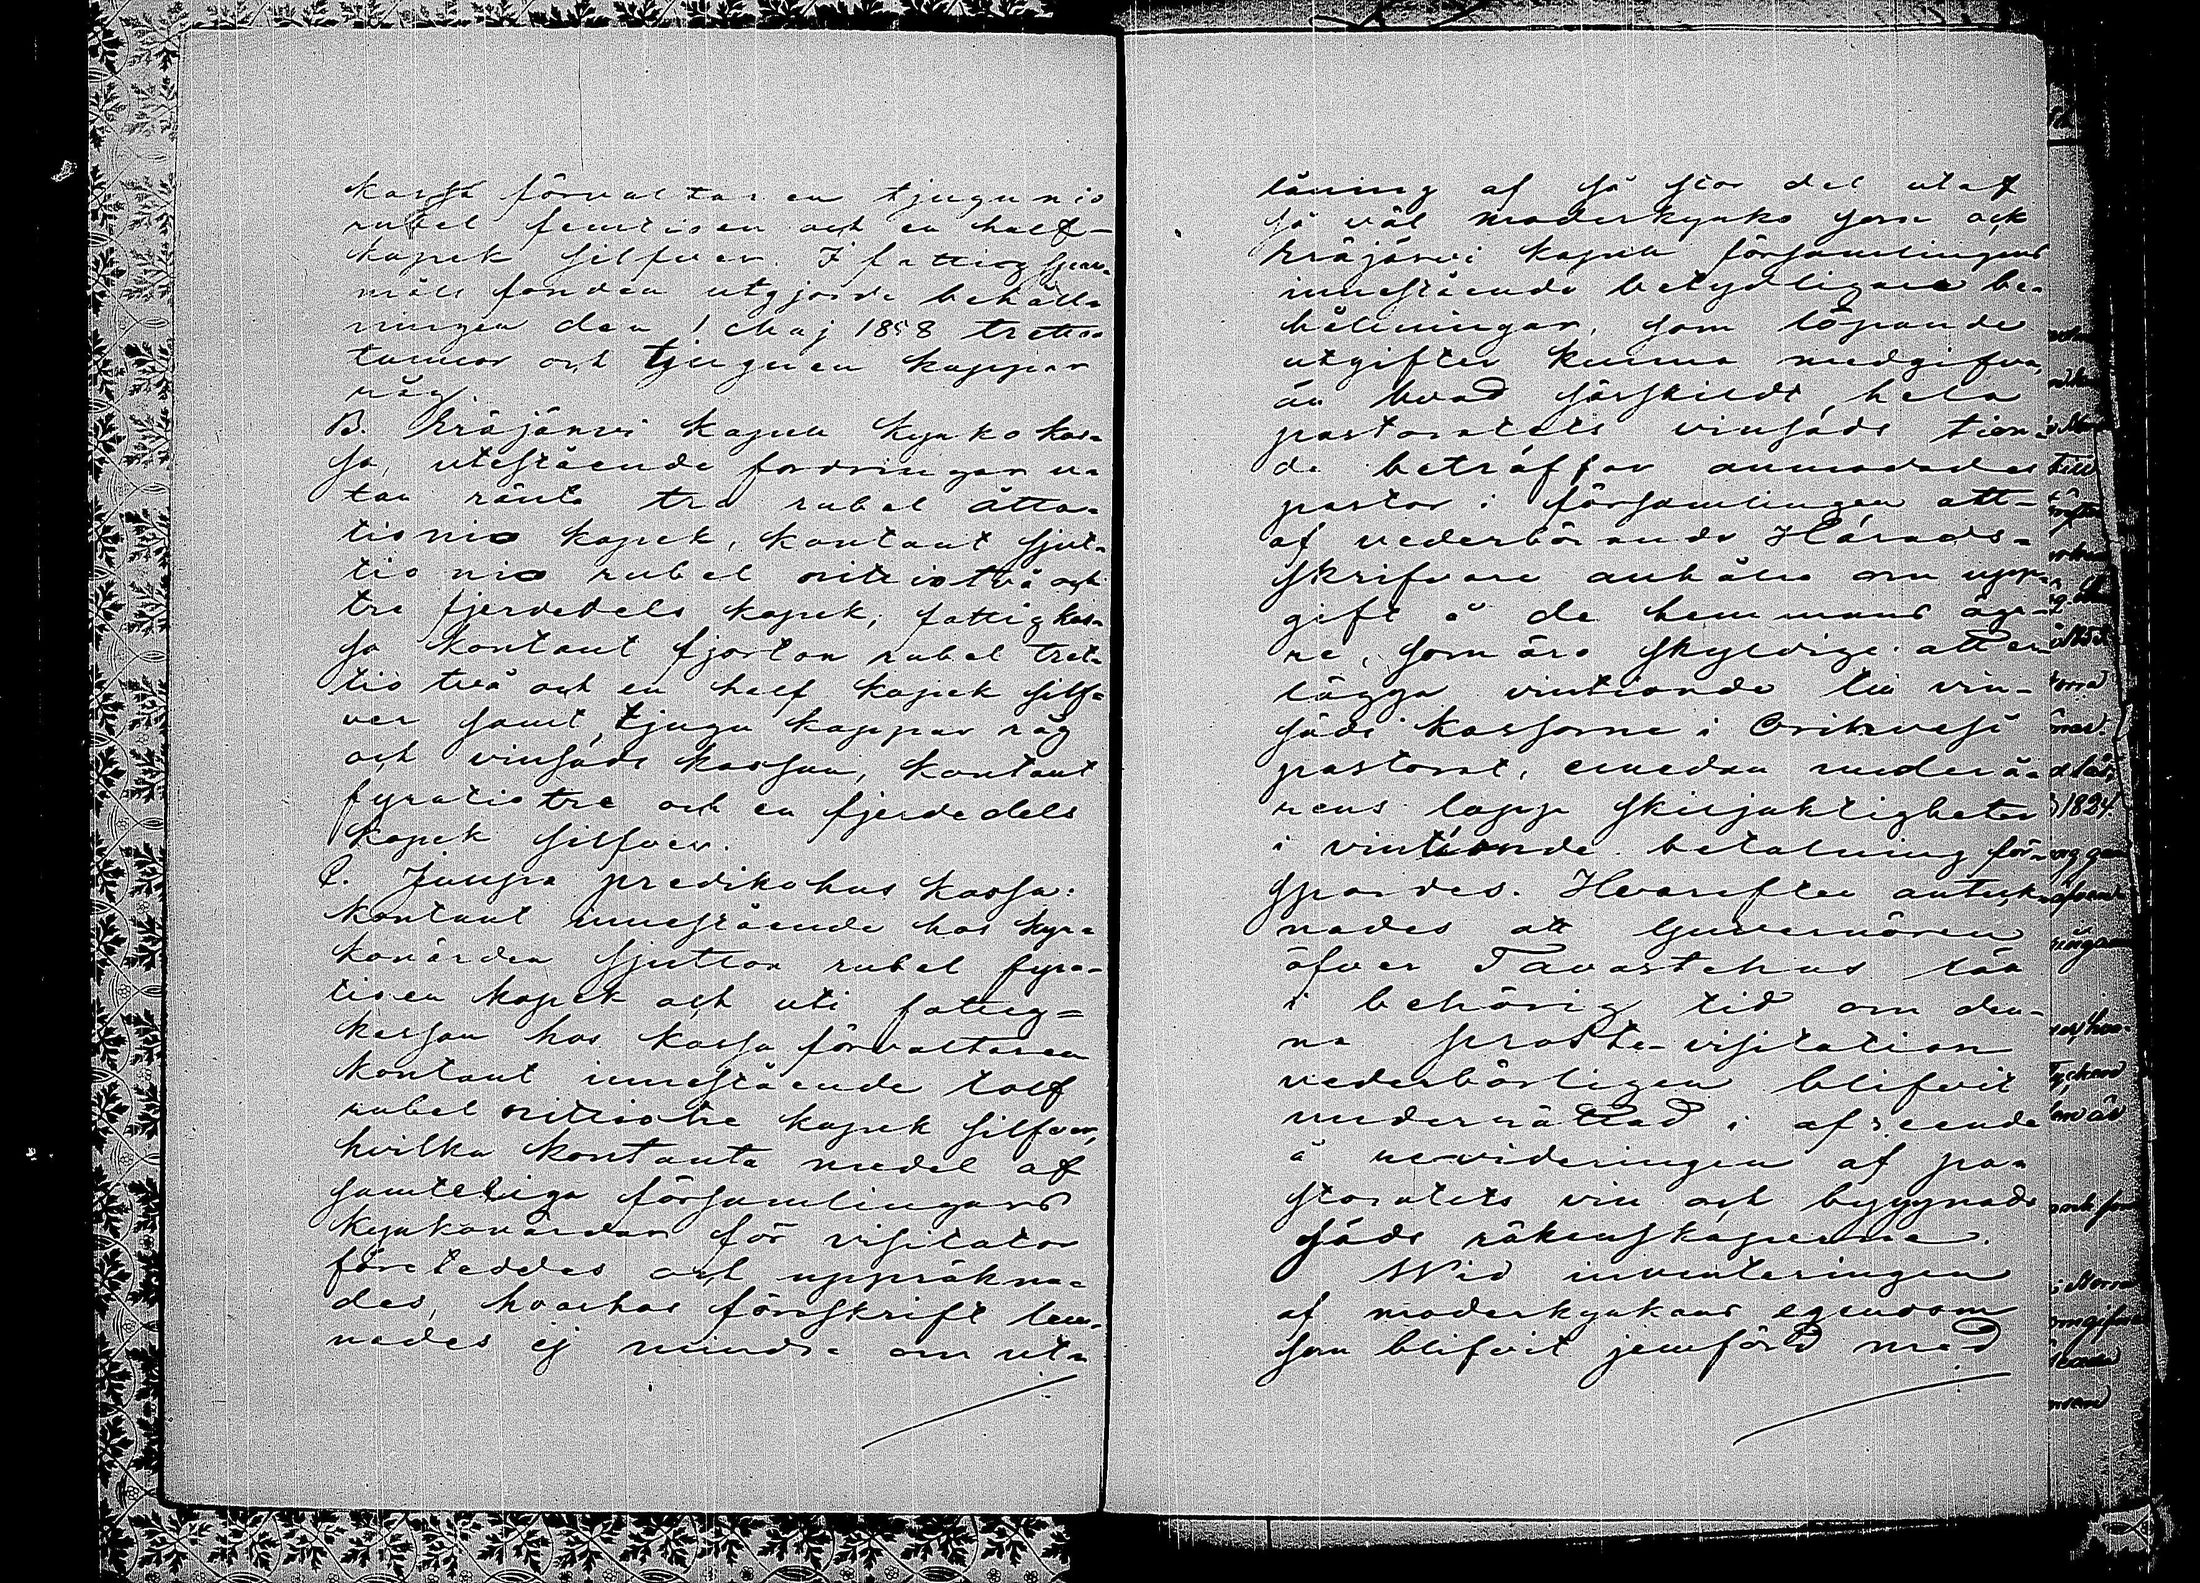 kassa förvaltaren tjugunio
rubel femtioen och en half-
kopek silfver. I fattig spann-
måls fonden utgjorde behåll-
ningen den 1 Maj 1858 tretton
tunnor och tjuguen kappar
råg.
B. Eräjärvi kapell kyrko kas-
sa, utestående fordringar u-
tan ränta tre rubel åtta-
tionio kopek, kontant sjut-
tionio rubel nittiotvå och
tre fjerdedels kopek; fattigkas-
sa kontant fjorton rubel tret-
tio två och en half kopek silf-
ver samt tjugu kappar råg
och vinsäds kassan, kontant
fyratiotre och en fjerdedels
kopek silfver.
C. Juupa predikohus kassa:
kontant innestående hos kyr-
kovärden sjutton rubel fyra-
tioen kopek och uti fattig-
kassan hos kassa förvaltaren
kontant innestående tolf
rubel nittiotre kopek silfver,
hvilka kontanta medel af
samtelliga församlingars
kyrkovärdar för visitator
företeddes och uppräkna-
des, hvarhos förskrift lem-
nades ej mindre om ut-
låning af så stor del utaf
så väl moderkyrko som ock
Eräjärvi kapell församlingens
innestående betydligare be-
hållningar, som löpande
utgifter kunna medgifva,
än hvad särskildt hela
pastoratets vinsäds tion-
de beträffar anmodades
pastor i församlingen att
af vederbörande Härads-
skrifvare anhålla om upp-
gift å de hemmans äga-
re, som äro skyldige att er-
lägga vintionde till vin-
säds kassorne i Orihvesi
pastorat, emedan under å-
rens lopp skiljaktigheter
i vintionde betalning för-
spordes. Hvarefter anteck-
nades att Guvernören
öfver Tavastehus län
i behörig tid om den-
na prosté-visitation
vederbörligen blifvit
underrättad i afseende
å revideringen af pa-
storatets vin och byggnads
säds räkenskaperna.
Wid inventeringen
af moderkyrkans egendom
som blifvit jemförd med